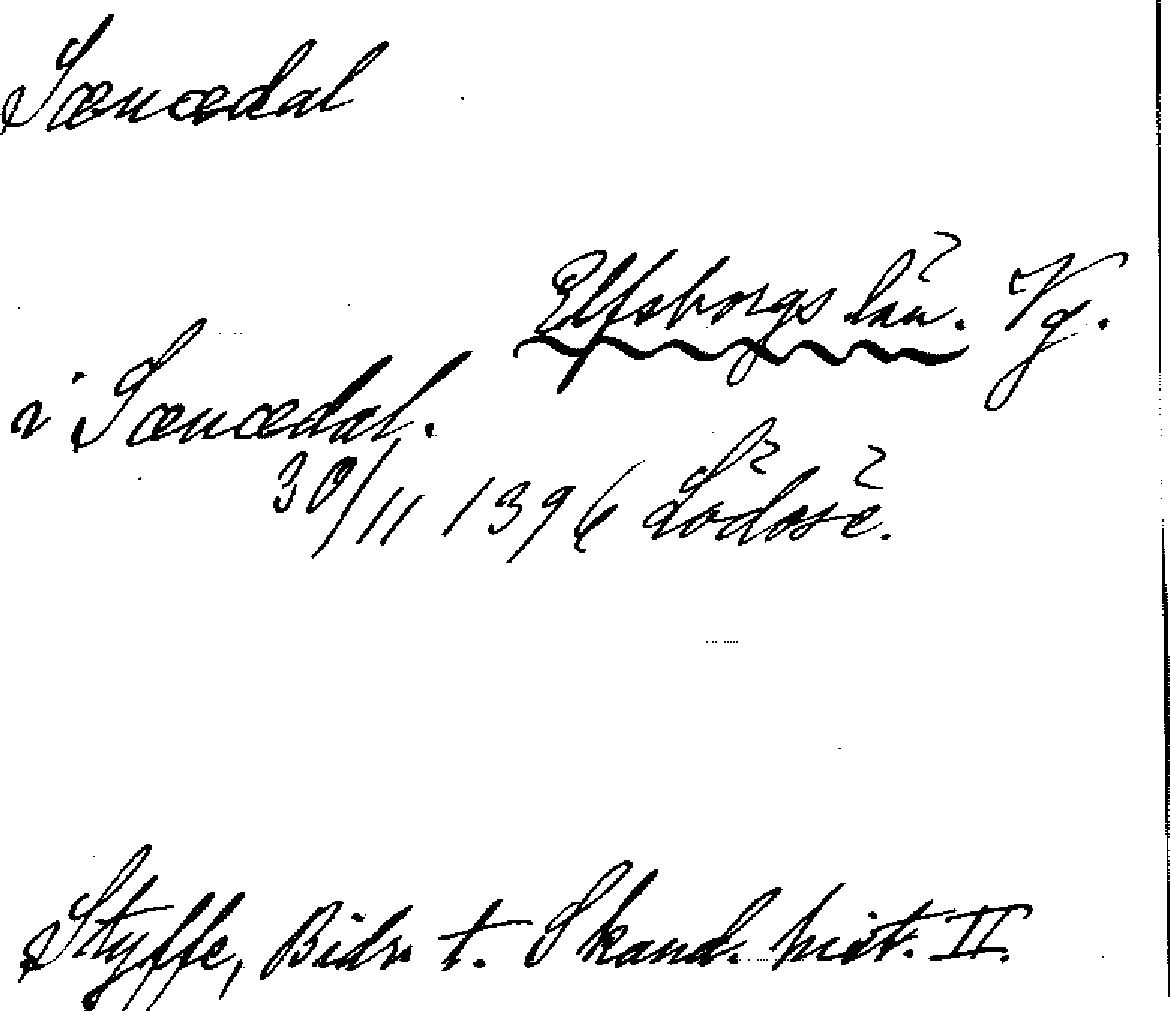 Sæuædal
Elfsborgs län. Vg.
i Sæuædal.
30/11 1396 Lödöse.
Styffe, Bidr. t. Skand. hist. II.